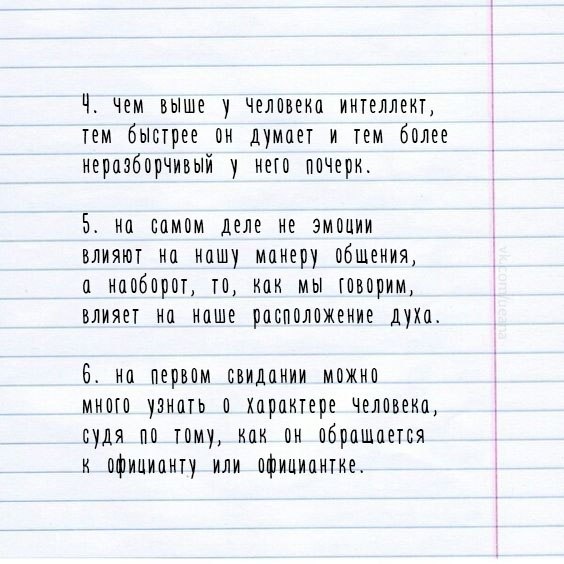 4. чем выше у человека интеллект,
тем быстрее он думает и тем более
неразборчивый у него почерк.
5. на самом деле не эмоции
влияют на нашу манеру общения,
а наоборот, то, как мы говорим,
влияет на наше расположение духа.
6. на первом свидании можно
много узнать о характере человека,
судя по тому, как он обращается
к официанту или официантке.